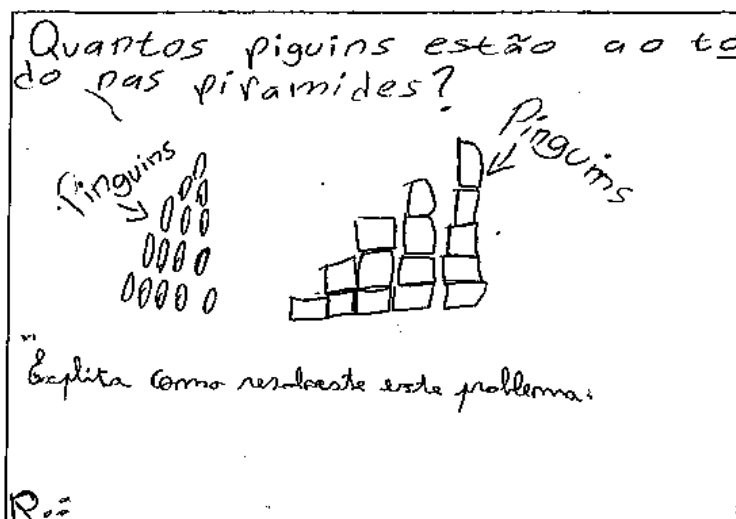 Quantos piguins estão ao to
do nas piramides?
Pinguins
Pinguins
Explita como resolveste este problema.
R.: